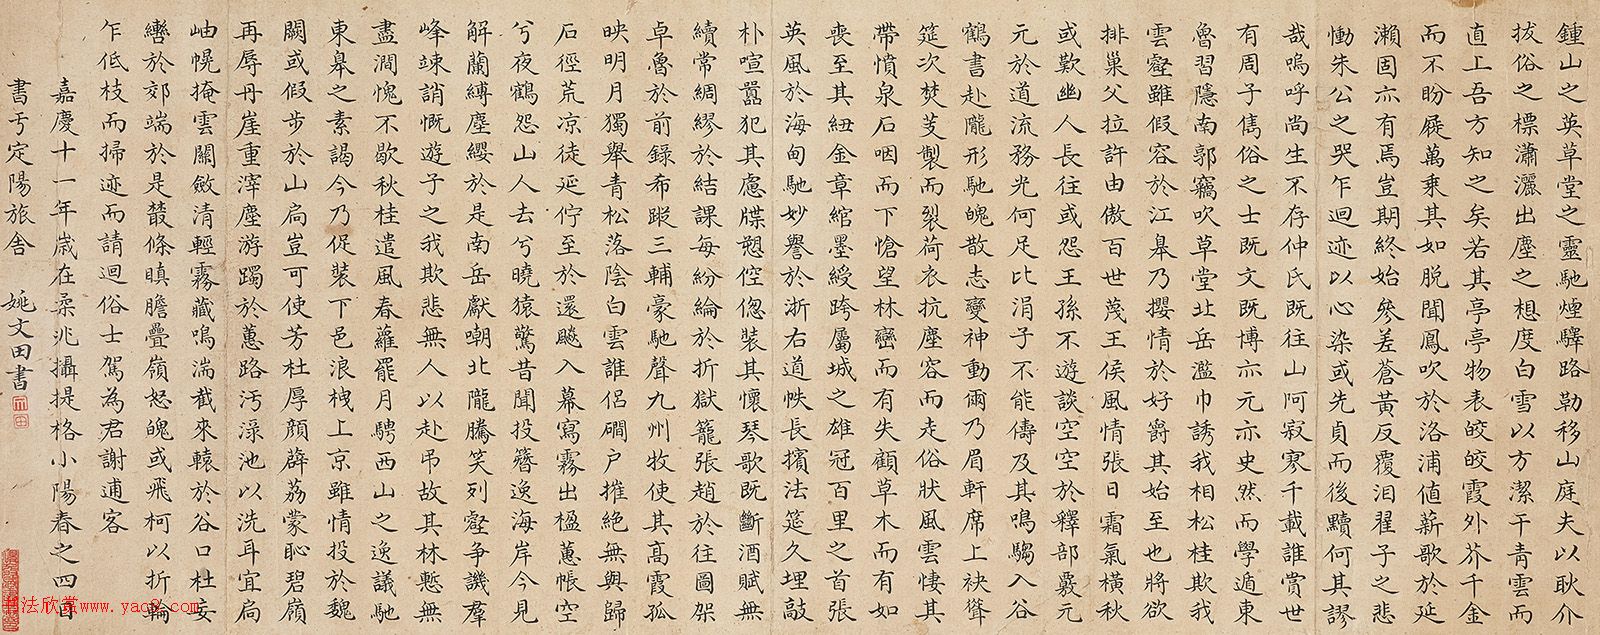 鍾山之英草堂之靈馳煙驛路勒移山庭夫以耿介
拔俗之標瀟灑出塵之想度白雪以方潔干青雲而
直上吾方知之矣若其亭亭物表皎皎霞外芥千金
而不盼屣萬乘其如脫聞鳳吹於洛浦值薪歌於延
瀨固亦有焉豈期終始參差蒼黃反覆泪翟子之悲
慟朱公之哭乍迴迹以心染或先貞而後黷何其謬
哉嗚呼尚生不存仲氏既往山阿寂寥千載誰賞世
有周子雋俗之士既文既博亦元亦史然而學遁東
魯習隱南郭竊吹草堂北岳濫巾誘我相松桂欺我
雲壑雖假容於江皋乃攖情於好爵其始至也將欲
排巢父拉許由傲百世蔑王侯風情張日霜氣橫秋
或歎幽人長往或怨王孫不遊談空空於釋部覈元
元於道流務光何足比涓子不能儔及其鳴騶入谷
鶴書赴隴形馳魄散志變神動爾乃眉軒席上袂聳
筵次焚芰製而裂荷衣抗塵容而走俗狀風雲悽其
帶憤泉石咽而下愴望林巒而有失顧草木而有如
喪至其紐金章綰墨綬跨屬城之雄冠百里之首張
英風於海甸馳妙譽於浙右道帙長擯法筵久埋敲
朴喧囂犯其慮牒愬倥傯裝其懷琴歌既斷酒賦無
續常綢繆於結課每紛綸於折獄籠張趙於往圖架
卓魯於前錄希蹤三輔豪馳聲九州牧使其高霞孤
映明月獨舉青松落陰白雲誰侶磵户摧絕無與歸
石徑荒涼徒延佇至於還飈入幕寫霧出楹蕙帳空
兮夜鶴怨山人去兮曉猿驚昔聞投簪逸海岸今見
解蘭縛塵纓於是南岳獻嘲北隴騰笑列壑爭譏羣
峰竦誚慨遊子之我欺悲無人以赴弔故其林慙無
盡澗愧不歇秋桂遣風春蘿罷月騁西山之逸議馳
東皋之素謁今乃促裝下邑浪栧上京雖情投於魏
闕或假步於山扃豈可使芳杜厚顏薜荔蒙恥碧嶺
再辱丹崖重滓塵游躅於蕙路污淥池以洗耳宜扃
岫幌掩雲關斂清輕霧藏鳴湍截來轅於谷口杜妄
轡於郊端於是叢條瞋膽疊嶺怒魄或飛柯以折輪
乍低枝而掃迹而請迴俗士駕為君謝逋客
嘉慶十一年歲在柔兆攝提格小陽春之四日
書于定陽旅舍 姚文田書
书法欣赏www.yac8.com